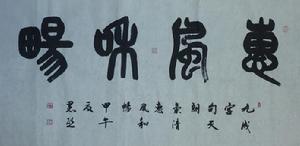 惠風和暢
九成
宮
句天
朗
氣清
惠
風和
暢
甲午